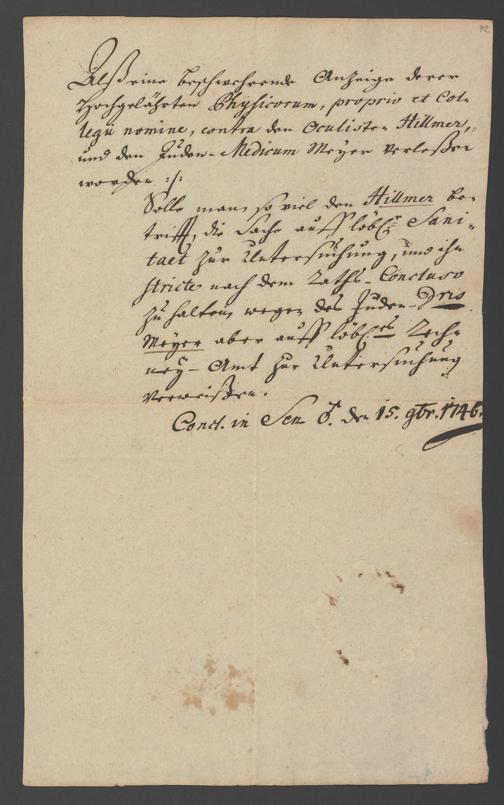 92
Alß eine beschwehrende Anzeige derer
Hochgelährten Physicorum, proprio et Col-
legii nomine, contra den Oculisten Hillmer,
und den Juden-Medicum Meyer verleßen
worden :/:
Solle man, so viel den Hillmer be-
trifft, die Sache auff löbl. Sani-
taet zur Untersuchung, und ihn
stricte nach dem Raths-Concluso
zu halten, wegen des Juden Dris
Meyer aber auff löbl.es Reche-
ney-Amt zur Untersuchung
verweißen.
Concl. in Sen. d. den 15. 9br. 1746.